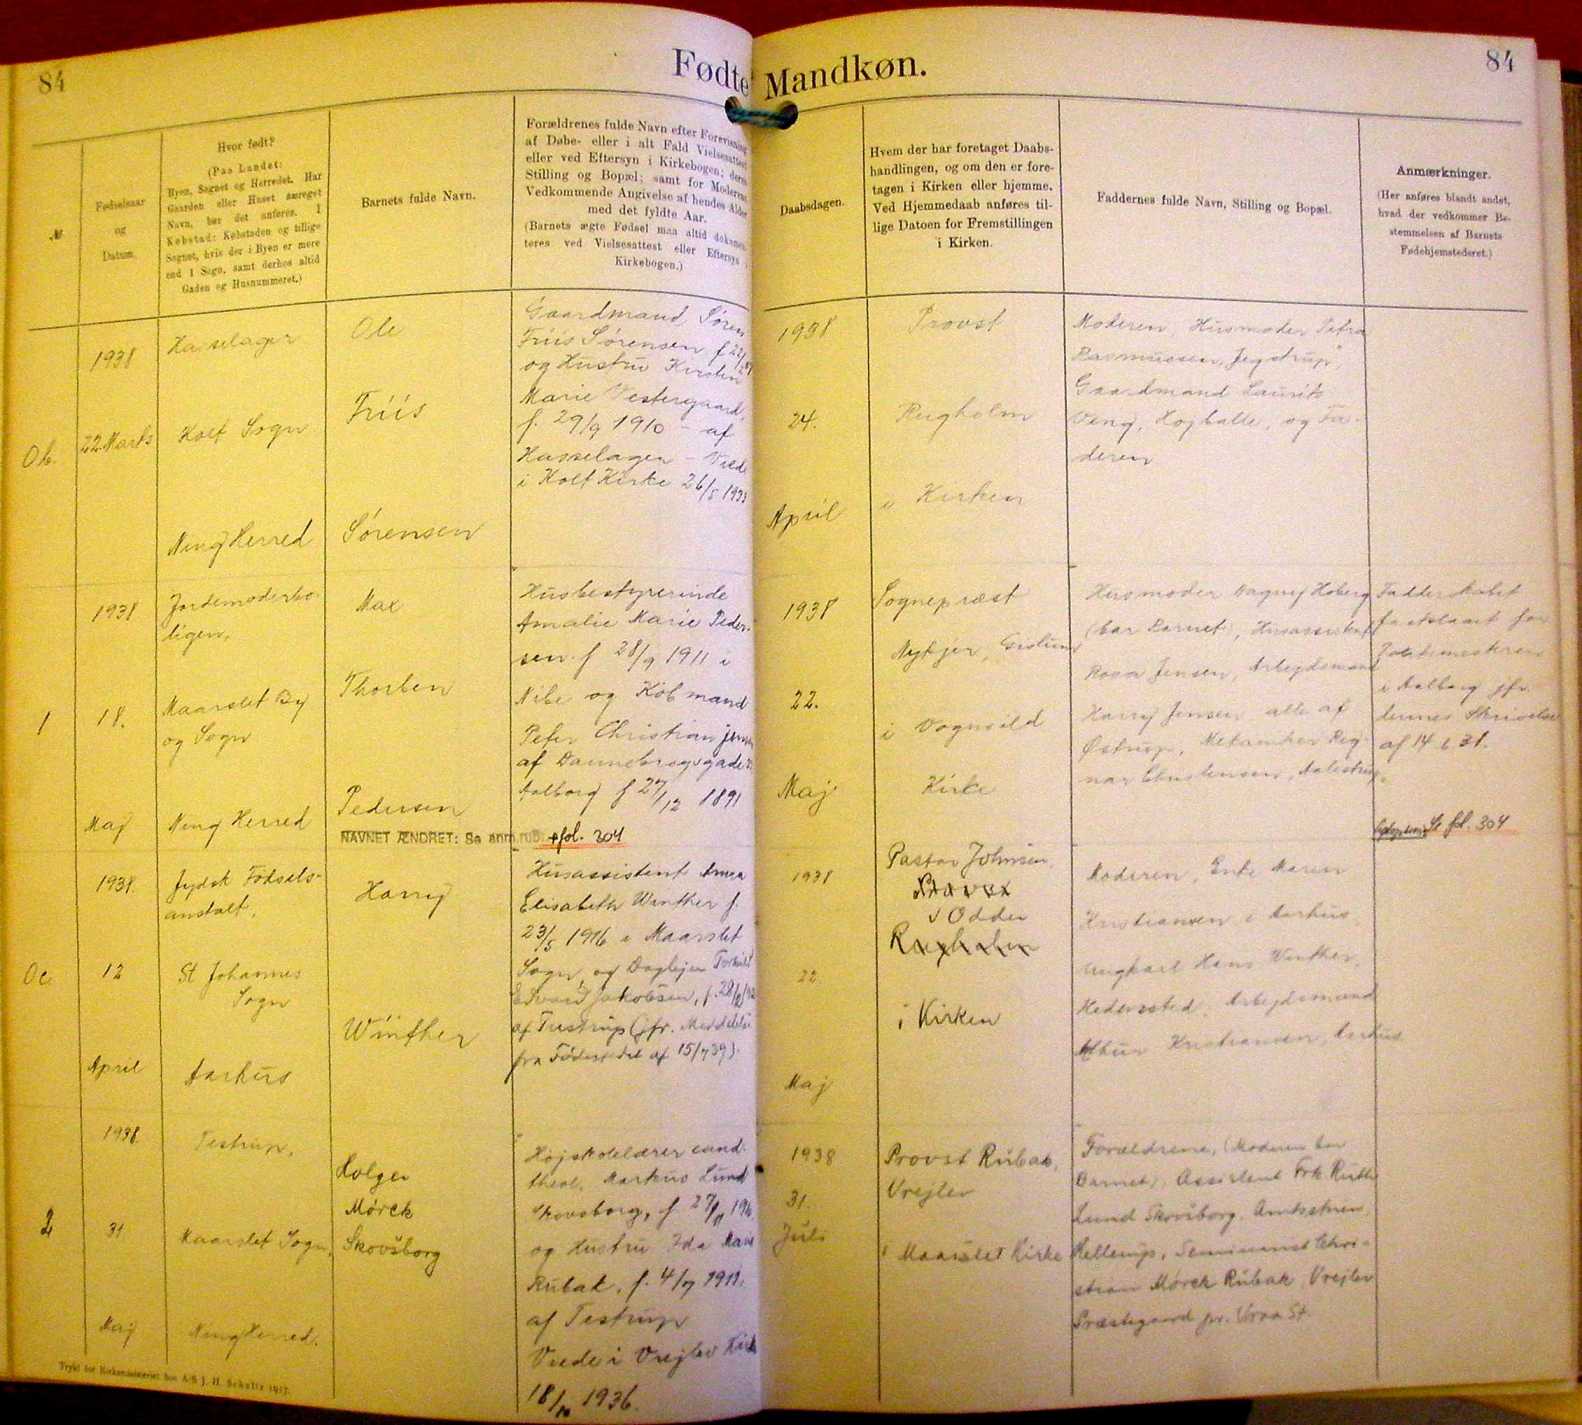 84
Fødte Mandkøn.
84
№
Fødselsaar
og
Datum.
Hvor født?
(Paa Landet:
Byen, Sognet og Herredet. Har
Gaarden eller Huset særeget
Navn, bør det anføres. I
Købstad: Købstaden og tillige
Sognet, hvis der i Byen er mere
end 1 Sogn, samt derhos altid
Gaden og Husnummeret.)
Barnets fulde Navn.
Forældrenes fulde Navn efter Forevisning
af Døbe- eller i alt Fald Vielsesattest
eller ved Eftersyn i Kirkebogen; deres
Stilling og Bopæl; samt for Moderens
Vedkommende Angivelse af hendes Alder
med det fyldte Aar.
(Barnets ægte Fødsel maa altid dokumen-
teres ved Vielsesattest eller Eftersyn i
Kirkebogen.)
Daabsdagen.
Hvem der har foretaget Daabs-
handlingen, og om den er fore-
tagen i Kirken eller hjemme.
Ved Hjemmedaab anføres til-
lige Datoen for Fremstillingen
i Kirken.
Faddernes fulde Navn, Stilling og Bopæl.
Anmærkninger.
(Her anføres blandt andet,
hvad der vedkommer Be-
stemmelsen af Barnets
Fødehjemstederet.)
1938
22. Marts
Hasselager
Kolt Sogn
Ning Herred
Ole
Friis
Sørensen
Gaardmand Søren
Friis Sørensen f 22/
og Hustru Kirsten
Marie Vestergaard,
f. 29/9 1910 - af
Hasselager - Viede
i Kolt Kirke 26/5 193
1938
24.
April
Provst
Rugholm
i Kirken
Moderen, Husmoder Petra
Rasmussen, Jegstrup,
Gaardmand Laurits
Veng, Højballe, og Fa-
deren
1
1938
18.
Maj
Jordemoderbo-
ligen,
Maarslet By
og Sogn
Ning Herred
Max
Thorben
Pedersen
NAVNET ÆNDRET: Se anm.rub. + fol. 304
Husbestyrerinde
Amalie Marie Peder-
sen f 28/9 1911 i
Nibe og Købmand
Peter Christian Jensen
af Dannebrogsgade
Aalborg f 27/12 1891
1938
22.
Maj
Sognepræst
Nykjær, Gislum
i Vognsild
Kirke
Husmoder Dagny Høberg
(bar Barnet), Husassistent
Rosa Jensen, Arbejdsmand
Harry Jensen alle af
Østrup, Mekaniker Reg-
nar Christensen, Aalestrup.
Fadderskabet
fastslaaet for
Politimesteren
i Aalborg jfr.
dennes Skrivelse
af 14 6 38.
Se fol. 304
1938.
12
April
Jydsk Fødsels-
anstalt,
St Johannes
Sogn
Aarhus
Harry
Winther
Husassistent Anna
Elisabeth Winther f.
23/5 1916 i Maarslet
Sogn, og Daglejer
Edvard Jakobsen, f. 28/
af Tustrup (jfr. Meddelelse
fra Fødestedet af 15/7 39).
1938
22
Maj
Pastor Johnsen
Provst
i Odder
Rugholm
i Kirken
Moderen, Enke Maren
Kristiansen i Aarhus,
Ungkarl Hans Winther,
Hedensted, Arbejdsmand
Arthur Kristiansen, Aarhus
2
1938.
31
Maj
Testrup,
Maarslet Sogn,
Ning Herred.
Holger
Mørck
Skovsborg
Højskolelærer cand.
theol. Markus Lund
Skovsborg, f. 27/11 191
og Hustru Ida Marie
Rubak, f. 4/7 1911,
af Testrup
Viede i Vrejlev Kirke
18/10 1936.
1938
31.
Juli
Provst Rubak,
Vrejlev
i Maarslet Kirke
Forældrene, (Moderen bar
Barnet), Assistent Frk. Ruth
Lund Skovsborg, Amtsstuen,
Hellerup, Seminarist Chri-
stian Mørck Rubak, Vrejlev
Præstegaard pr. Vraa St.
Trykt for Kirkeministeriet hos A/S J. H. Schultz 1917.